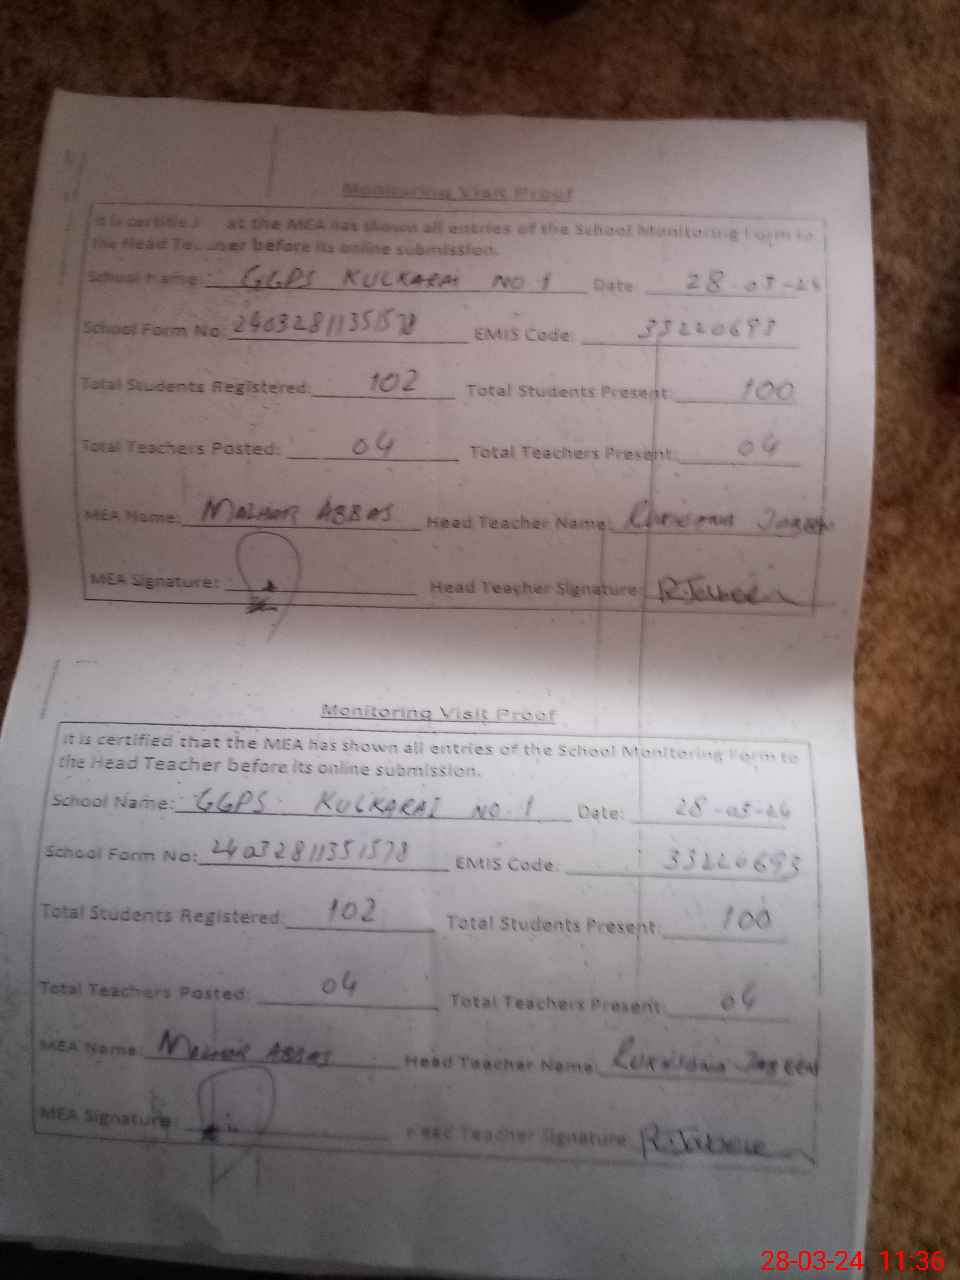 Monitoring Visit Proof
It is certified at the MEA has shown all entries of the School Monitoring Form to
the Head Teacher before its online submission.
School Name: GGPS KULKARAI NO 1 Date: 28-03-24
School Form No: 24032811351578 EMIS Code: 33220693
Total Students Registered: 102 Total Students Present: 100
Total Teachers Posted: 04 Total Teachers Present: 04
MEA Name: MAZHAR ABBAS Head Teacher Name:
MEA Signature: Head Teacher Signature: R.Jabeen
Monitoring Visit Proof
It is certified that the MEA has shown all entries of the School Monitoring Form to
the Head Teacher before its online submission.
School Name: GGPS KULKARAI NO.1 Date: 28-03-24
School Form No: 24032811351578 EMIS Code: 33220693
Total Students Registered: 102 Total Students Present: 100
Total Teachers Posted: 04 Total Teachers Present: 04
MEA Name: MAZHAR ABBAS Head Teacher Name:
MEA Signature: Head Teacher Signature: R.Jabeen
28-03-24 11:36